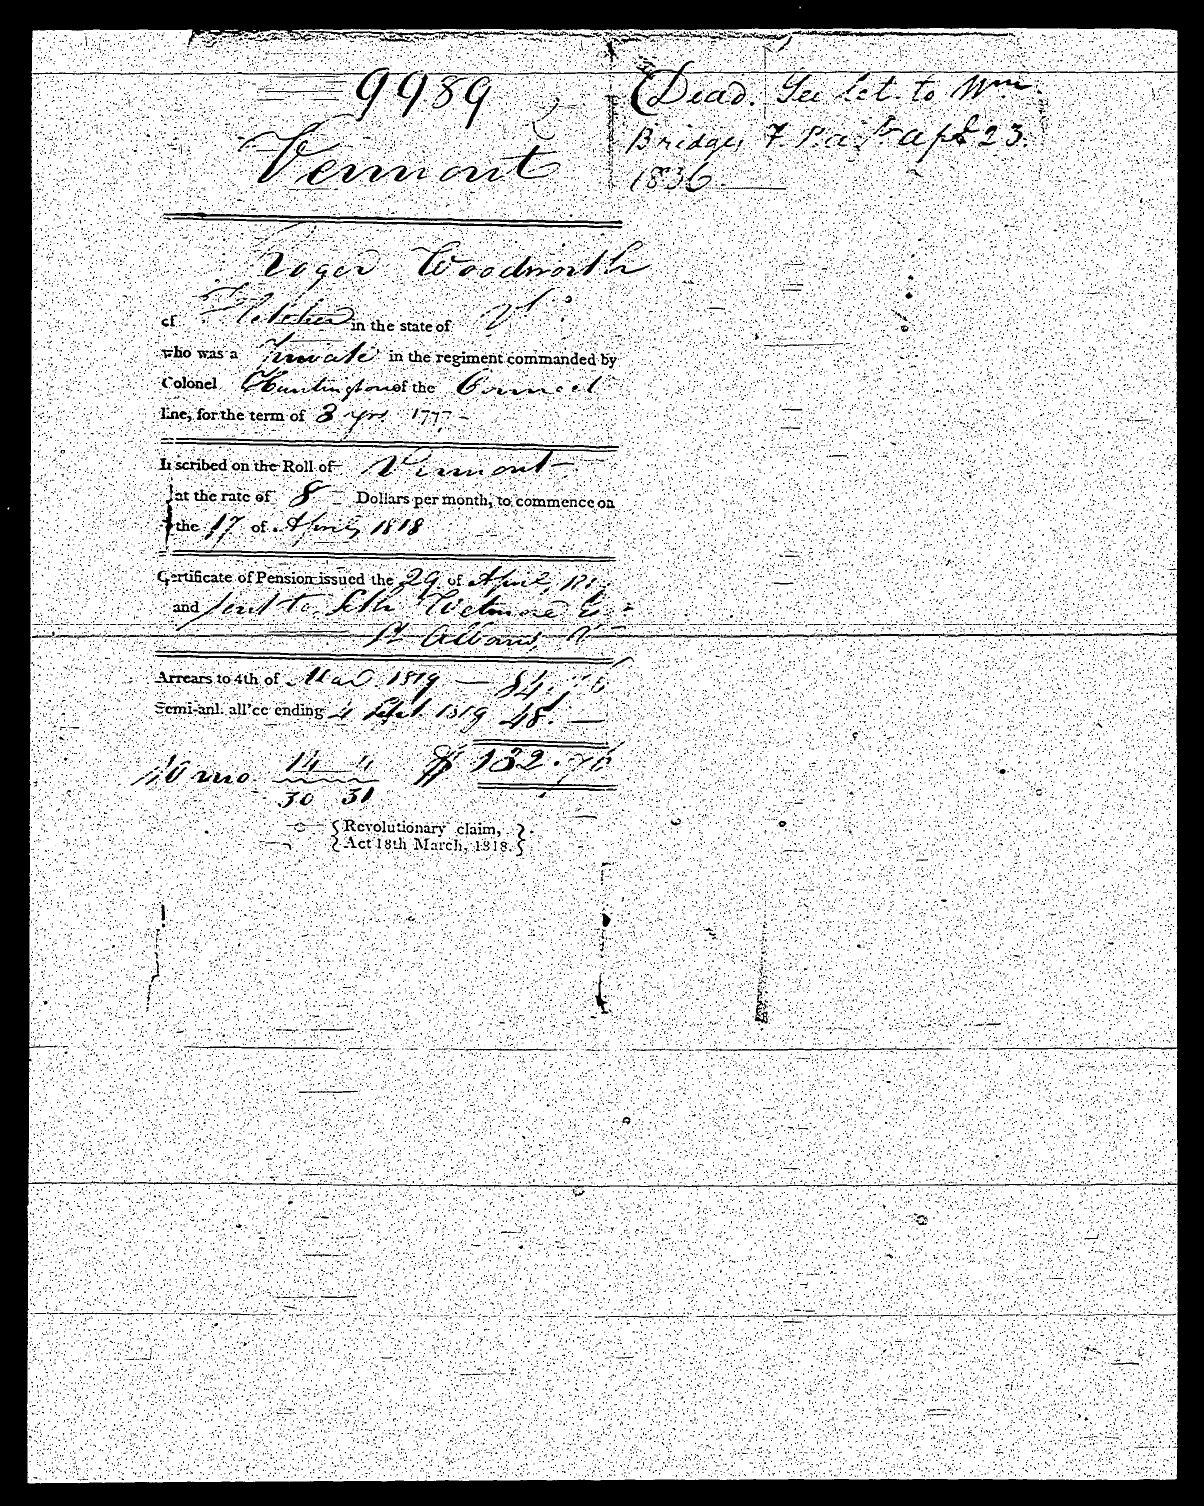 9989
Vermont
(Dead. See let. to Wm.
Bridges 7. Apl 23.
1836.
Roger Woodworth
of Fletcher in the state of Vt.
who was a Private in the regiment commanded by
Colonel Huntington of the Connect
line, for the term of 3 yrs. 1777 -
Inscribed on the Roll of Vermont -
at the rate of 8 - Dollars per month, to commence on
the 17 of April, 1818
Certificate of Pension issued the 29 of April,
and sent to Seth Wetmore Esq
St Albans, Vt
Arrears to 4th of Mar. 1819 — 84.76
Semi-anl. all'ce ending 4 Sept. 1819 48. —
$ 132.76
10 mo. 14 4
30 31
{Revolutionary claim, }
{Act 18th March, 1818. }